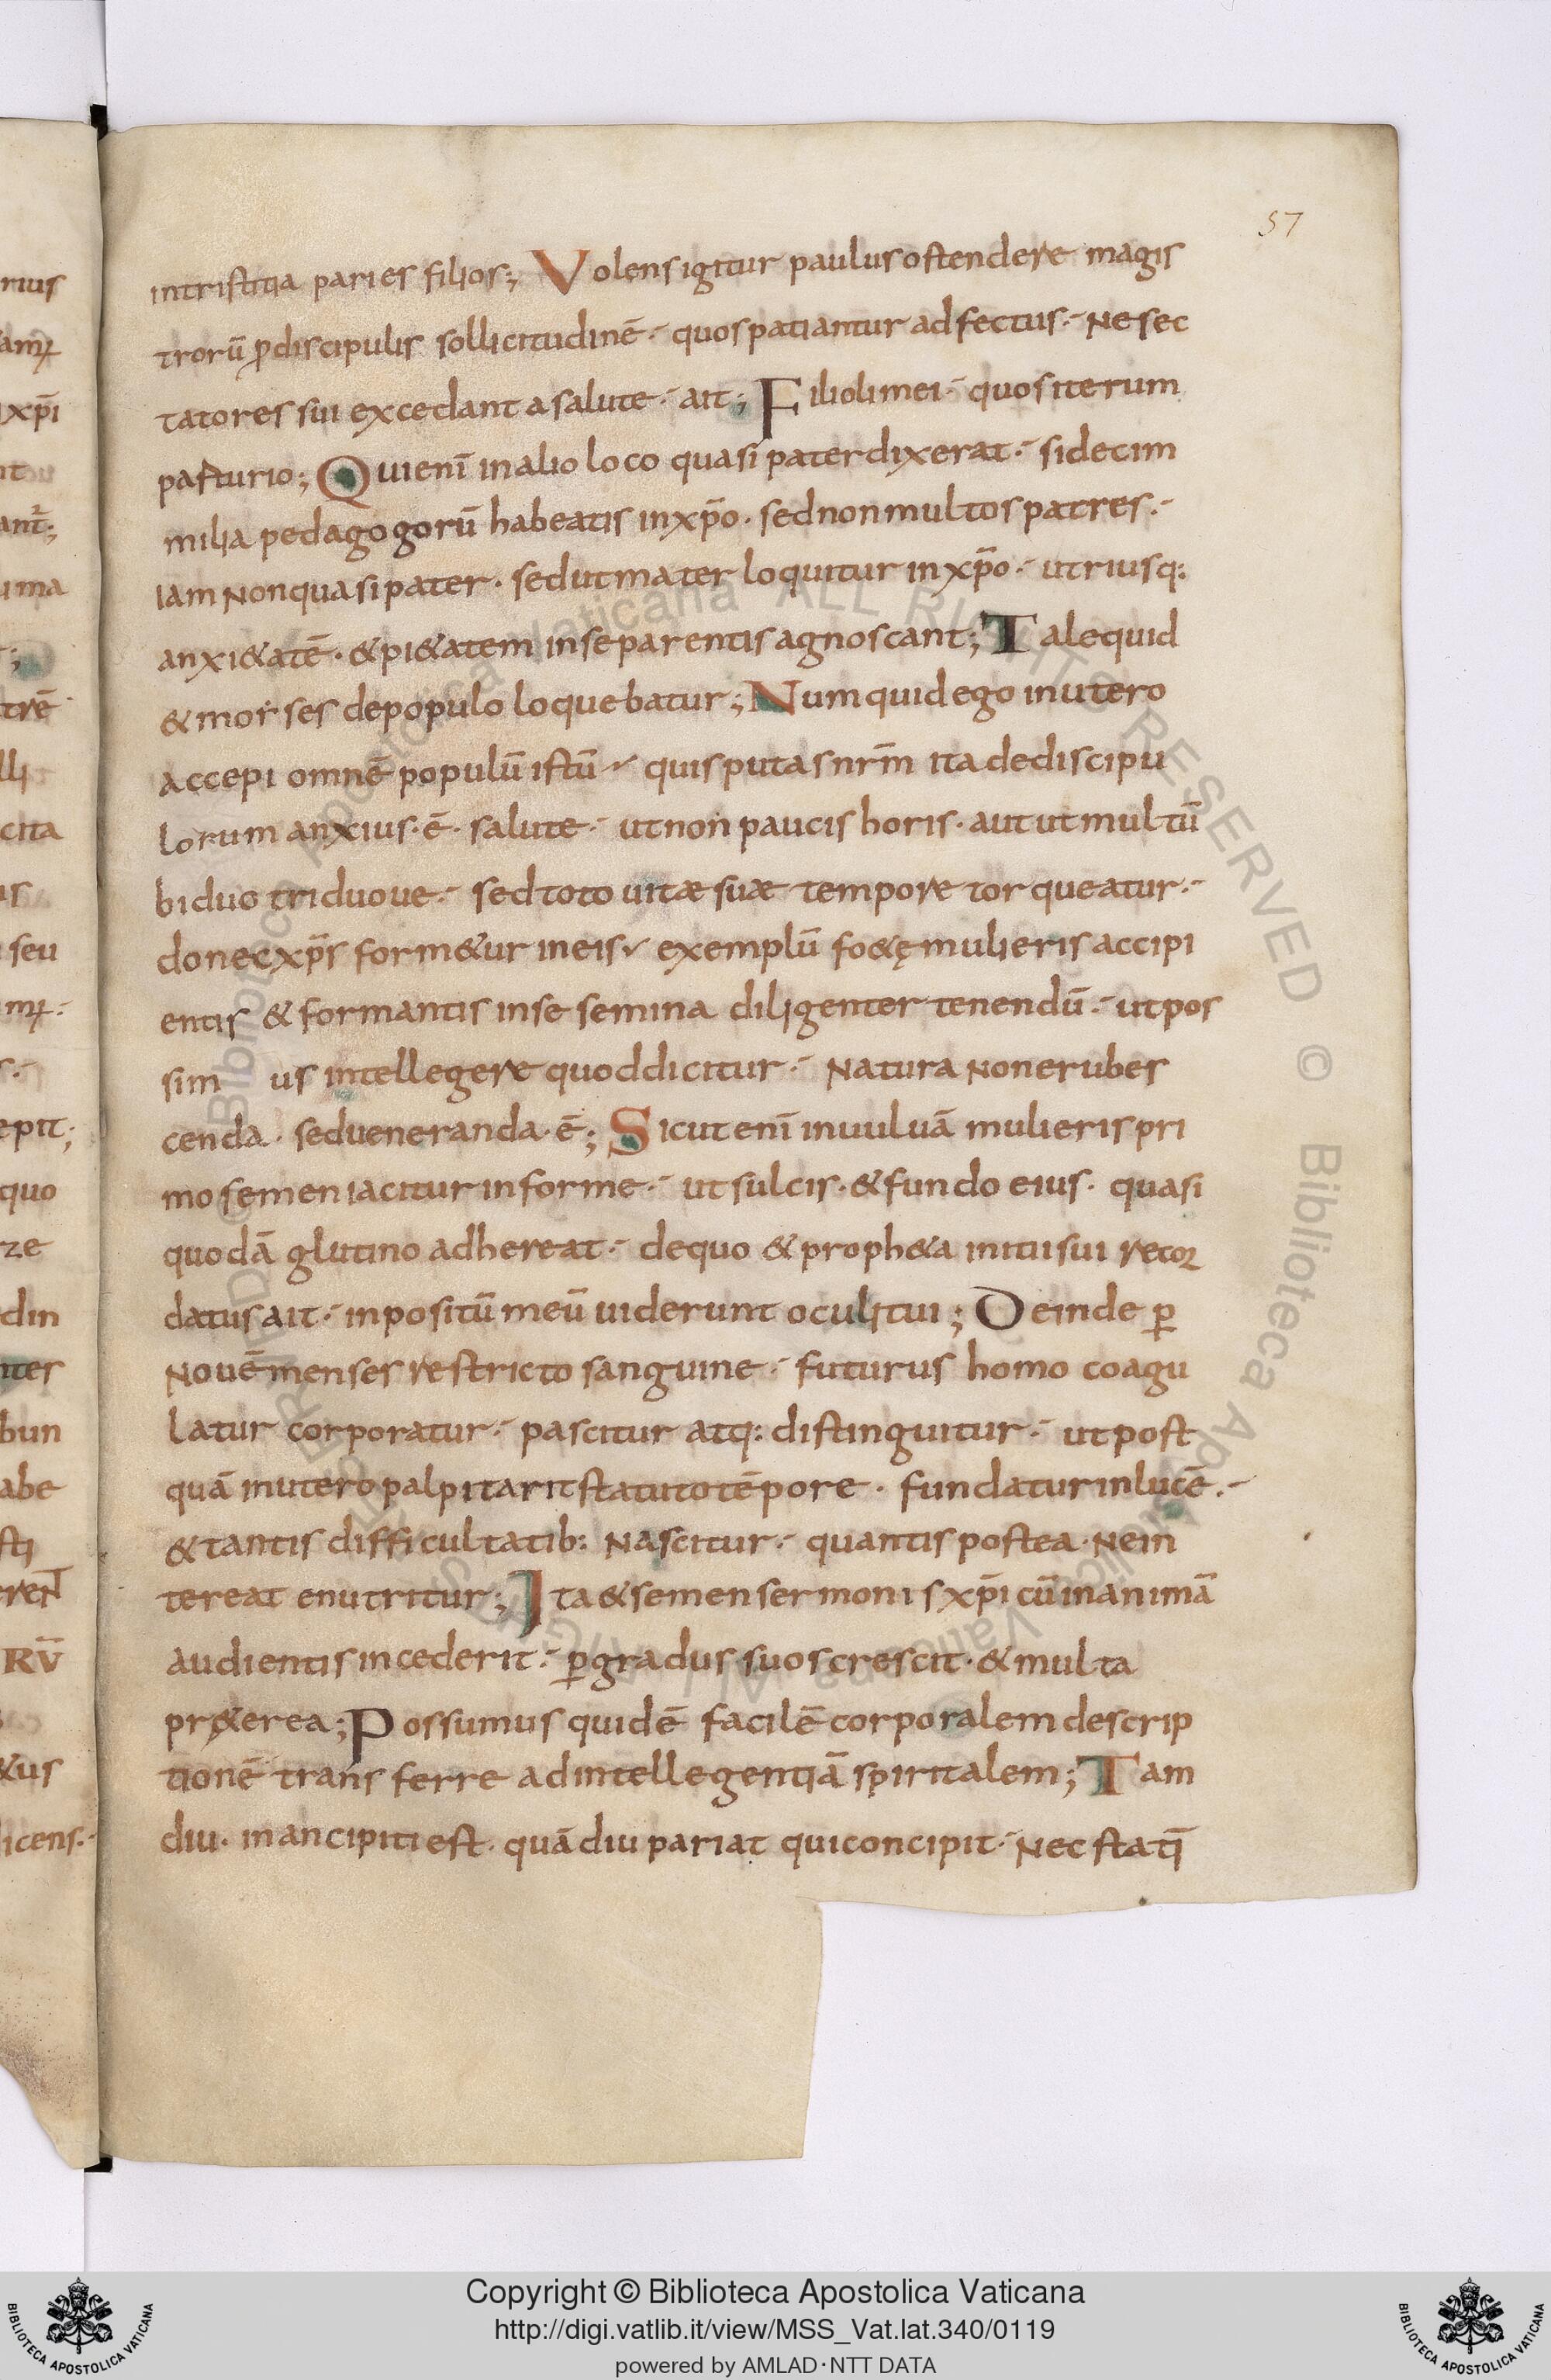 57
intristitia paries filios; Volens igitur paulus ostendere magis
trorū ꝓdiscipulis sollicitudinē· quos patiantur adfectus· Ne sec
tatores sui excedant a salute· ait; Filioli mei· quos iterum
pasturio; Quienī in alio loco quasi pater dixerat· si decim
milia pedagogorū habeatis in xp̄o· sed non multos patres·
iam non quasi pater· sed ut mater loquitur in xp̄o· utriusq:
anxi&atē· & pi&atem in se parentis agnoscant; Tale quid
& morses de populo loquebatur; Numquid ego in utero
accepi omnē populū istū quis putas nr̄m ita de discipu
lorum anxius· ē· salute· ut non paucis horis· aut ut multū
biduo triduoue· sed toto uitæ suæ tempore torqueatur·
donec xp̄s form&ur in eis exemplū fo&ę mulieris accipi
entis & formantis in se semina diligenter tenendū· ut pos
sim us intellegere quod dicitur· Natura non erubes
cenda· sed ueneranda· ē; Sicut enī in uuluā mulieris pri
mo semen iacitur informe· ut sulcis· & fundo eius· quasi
quodā glutino adhereat· de quo & proph&a initii sui recor
datus ait· inpositū meū uiderunt oculi tui; Deinde ꝑ
Nouē menses restricto sanguine· futurus homo coagu
latur corporatur· pascitur atq: distinguitur· ut post
quā in utero palpitarit statuto tēpore· fundatur in lucē·
& tantis difficultatib: Nascitur· quantis postea· Ne in
tereat enutritur; Ita & semen sermonis xp̄i cū in animā
audientis incederit· ꝑ gradus suos crescit· & multa
pr&erea; Possumus quidē facilē corporalem descrip
tionē transferre ad intellegentiā spiritalem; Tam
diu· in ancipiti est· quādiu pariat qui concipit· Nec statī
Copyright © Biblioteca Apostolica Vaticana
http://digi.vatlib.it/view/MSS_Vat.lat.340/0119
powered by AMLAD·NTT DATA
BIBLIOTECA APOSTOLICA VATICANA
BIBLIOTECA APOSTOLICA VATICANA